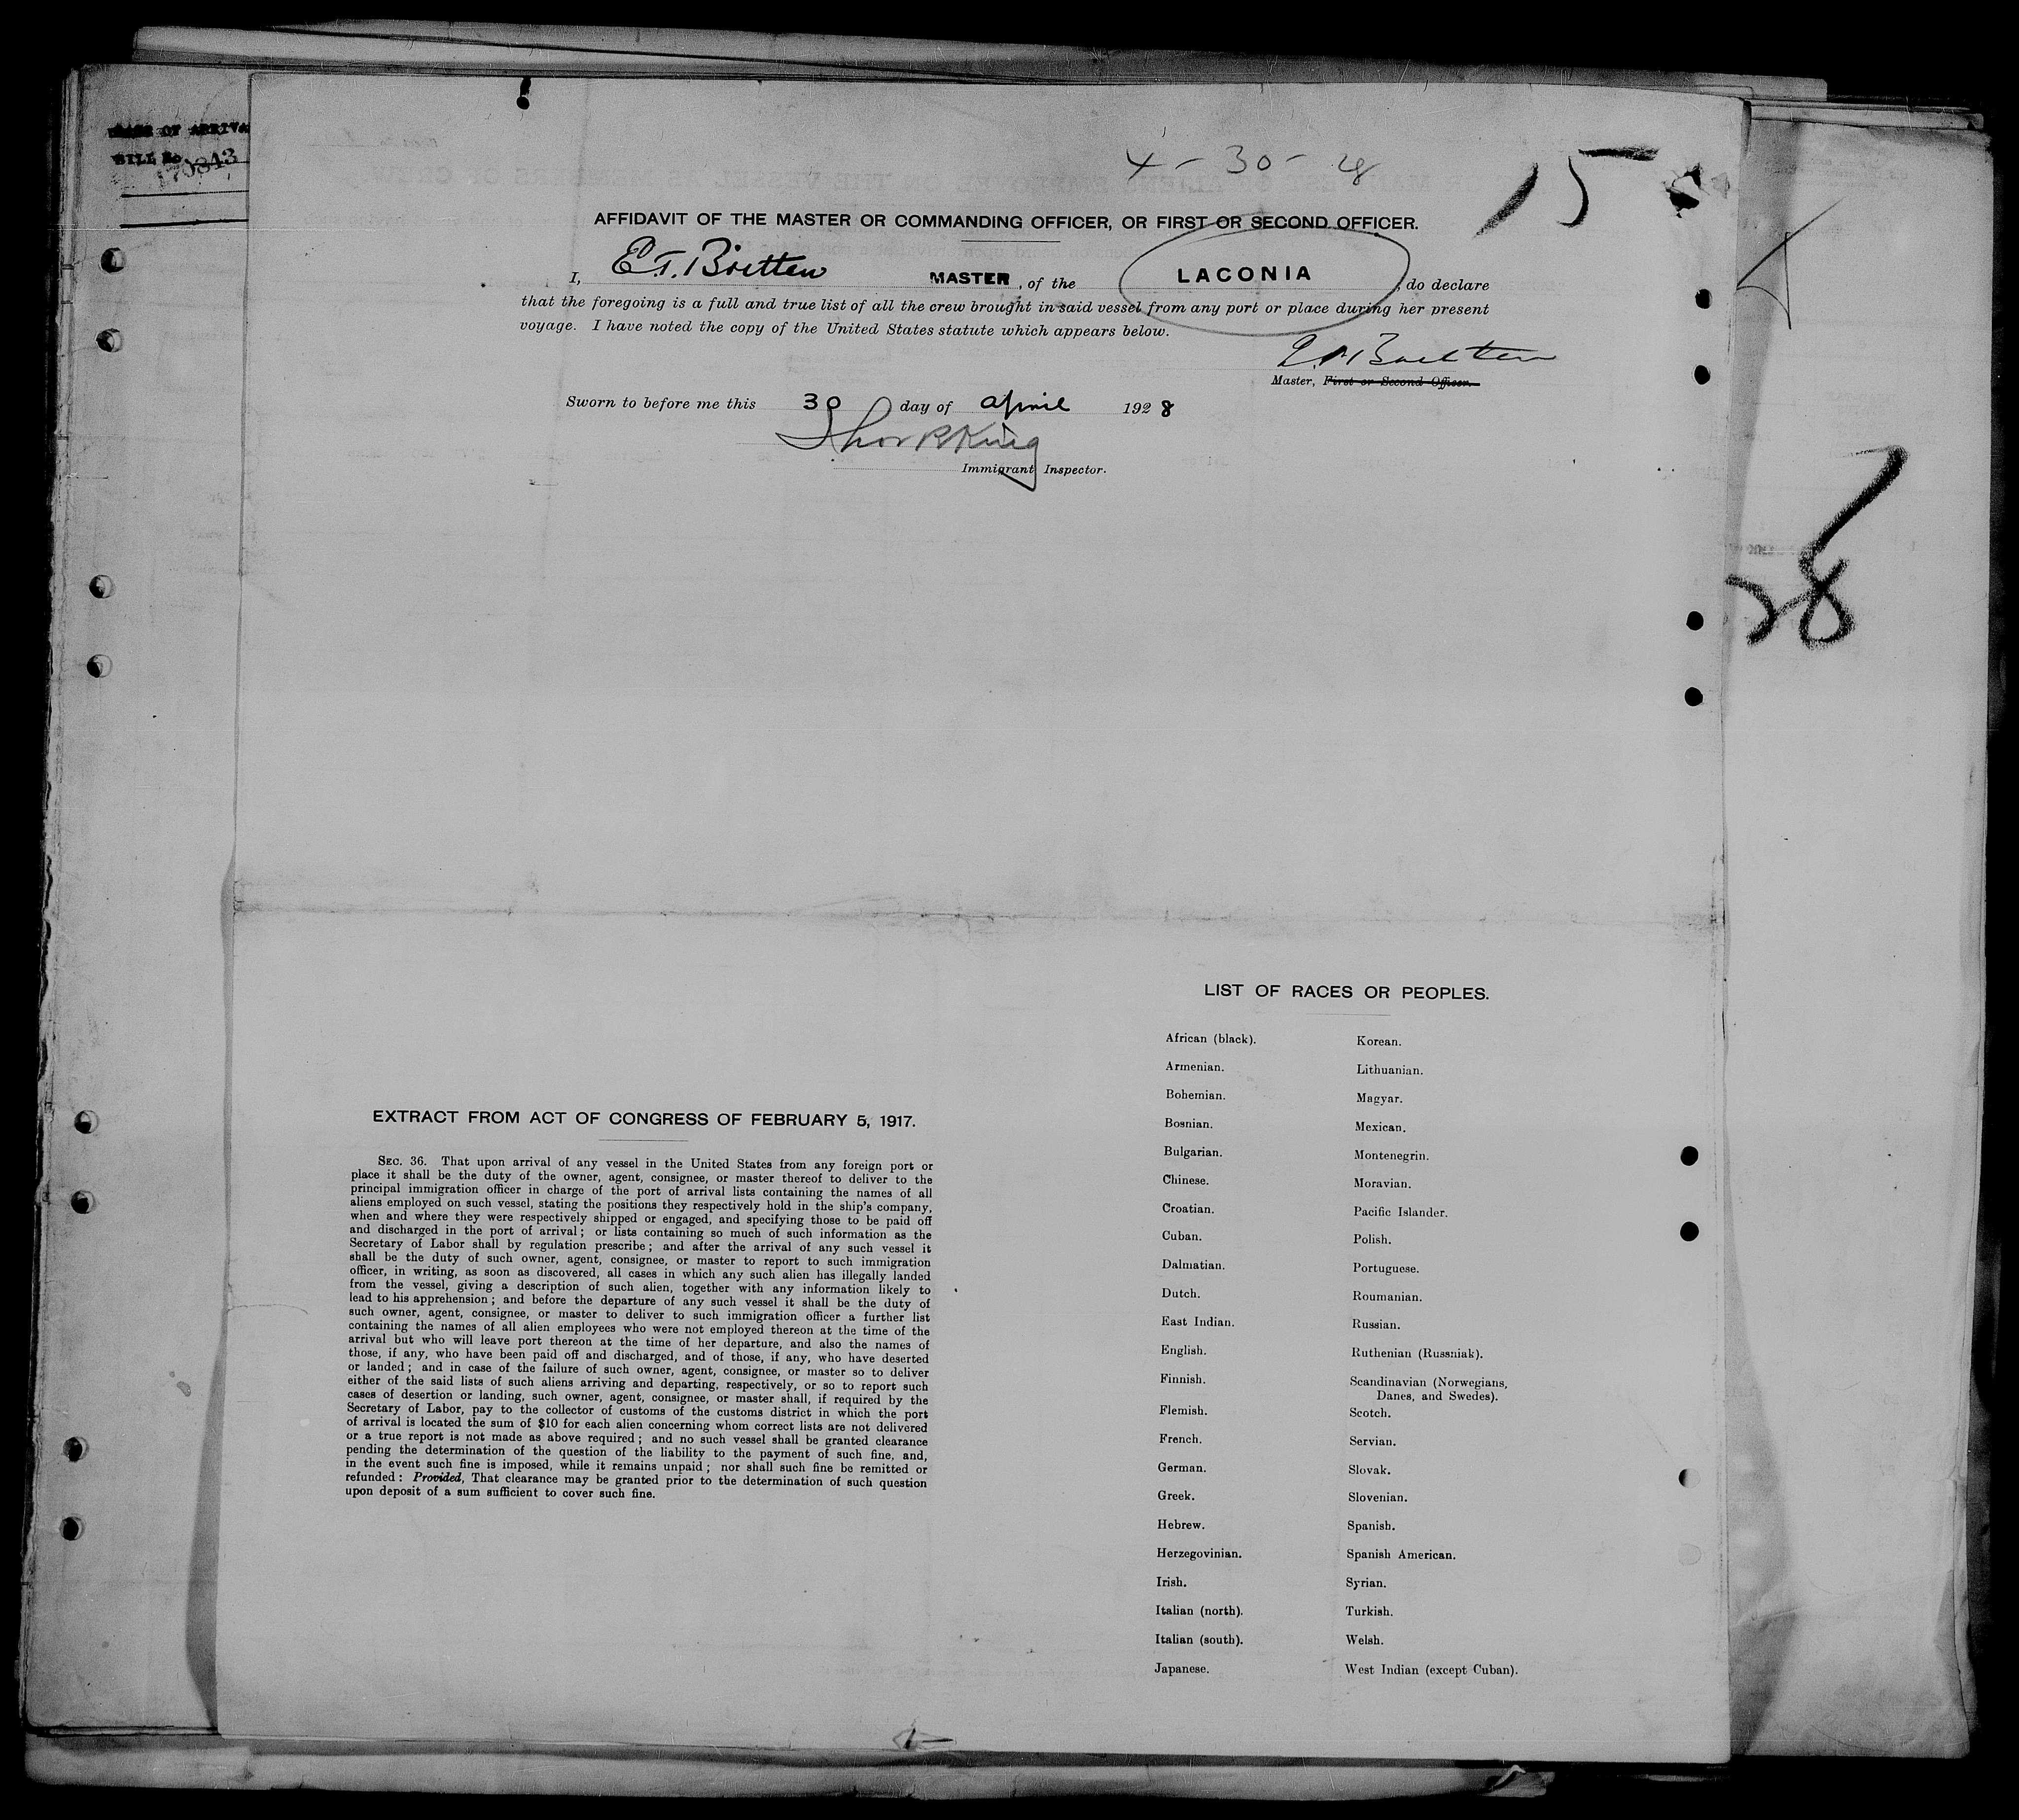 BILL No
170843
4-30-28
15
AFFIDAVIT OF THE MASTER OR COMMANDING OFFICER, OR FIRST OR SECOND OFFICER.
I, E.T. Britten MASTER, of the LACONIA, do declare
that the foregoing is a full and true list of all the crew brought in said vessel from any port or place during her present
voyage. I have noted the copy of the United States statute which appears below.
Britten
Master, First or Second Officer.
Sworn to before me this 30 day of April 1928
King
Immigrant Inspector.
LIST OF RACES OR PEOPLES.
African (black).
Armenian.
Bohemian.
Bosnian.
Bulgarian.
Chinese.
Croatian.
Cuban.
Dalmatian.
Dutch.
East Indian.
English.
Finnish.
Flemish.
French.
German.
Greek.
Hebrew.
Herzegovinian.
Irish.
Italian (north).
Italian (south).
Japanese.
Korean.
Lithuanian.
Magyar.
Mexican.
Montenegrin.
Moravian.
Pacific Islander.
Polish.
Portuguese.
Roumanian.
Russian.
Ruthenian (Russniak).
Scandinavian (Norwegians,
Danes, and Swedes).
Scotch.
Servian.
Slovak.
Slovenian.
Spanish.
Spanish American.
Syrian.
Turkish.
Welsh.
West Indian (except Cuban).
EXTRACT FROM ACT OF CONGRESS OF FEBRUARY 5, 1917.
SEC. 36. That upon arrival of any vessel in the United States from any foreign port or
place it shall be the duty of the owner, agent, consignee, or master thereof to deliver to the
principal immigration officer in charge of the port of arrival lists containing the names of all
aliens employed on such vessel, stating the positions they respectively hold in the ship's company,
when and where they were respectively shipped or engaged, and specifying those to be paid off
and discharged in the port of arrival; or lists containing so much of such information as the
Secretary of Labor shall by regulation prescribe; and after the arrival of any such vessel it
shall be the duty of such owner, agent, consignee, or master to report to such immigration
officer, in writing, as soon as discovered, all cases in which any such alien has illegally landed
from the vessel, giving a description of such alien, together with any information likely to
lead to his apprehension; and before the departure of any such vessel it shall be the duty of
such owner, agent, consignee, or master to deliver to such immigration officer a further list
containing the names of all alien employees who were not employed thereon at the time of the
arrival but who will leave port thereon at the time of her departure, and also the names of
those, if any, who have been paid off and discharged, and of those, if any, who have deserted
or landed; and in case of the failure of such owner, agent, consignee, or master so to deliver
either of the said lists of such aliens arriving and departing, respectively, or so to report such
cases of desertion or landing, such owner, agent, consignee, or master shall, if required by the
Secretary of Labor, pay to the collector of customs of the customs district in which the port
of arrival is located the sum of $10 for each alien concerning whom correct lists are not delivered
or a true report is not made as above required; and no such vessel shall be granted clearance
pending the determination of the question of the liability to the payment of such fine, and,
in the event such fine is imposed, while it remains unpaid; nor shall such fine be remitted or
refunded: Provided, That clearance may be granted prior to the determination of such question
upon deposit of a sum sufficient to cover such fine.